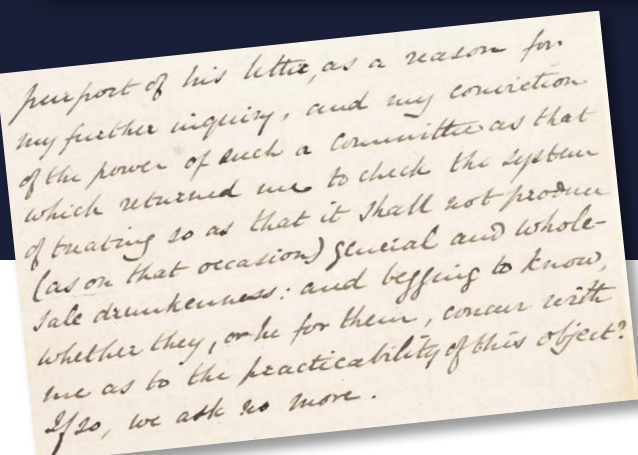 purport of his letter, as a reason for
my further inquiry, and my conviction
of the power of such a Committee as that
which returned me to check the system
of treating so as that it shall not produce
(as on that occasion) general and whole-
sale drunkenness: and begging to know,
whether they, or he for them, concur with
me as to the practicability of this object?
If so, we ask no more.